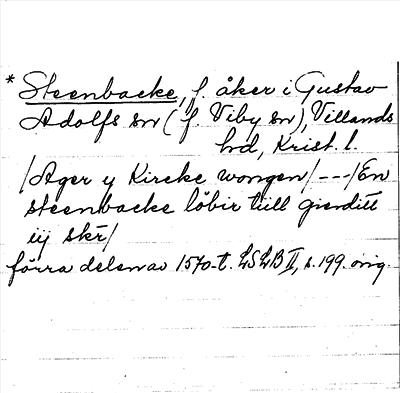 * Steenbacke, f. åker i Gustav
Adolfs sn (f. Viby sn), Villands
hd, Krist. l.
/Ager y Kircke wongen/---/En
steenbacke löbir till gierditt
iij skr/
förra delen av 1570-t. LSLB II, s. 199. orig.